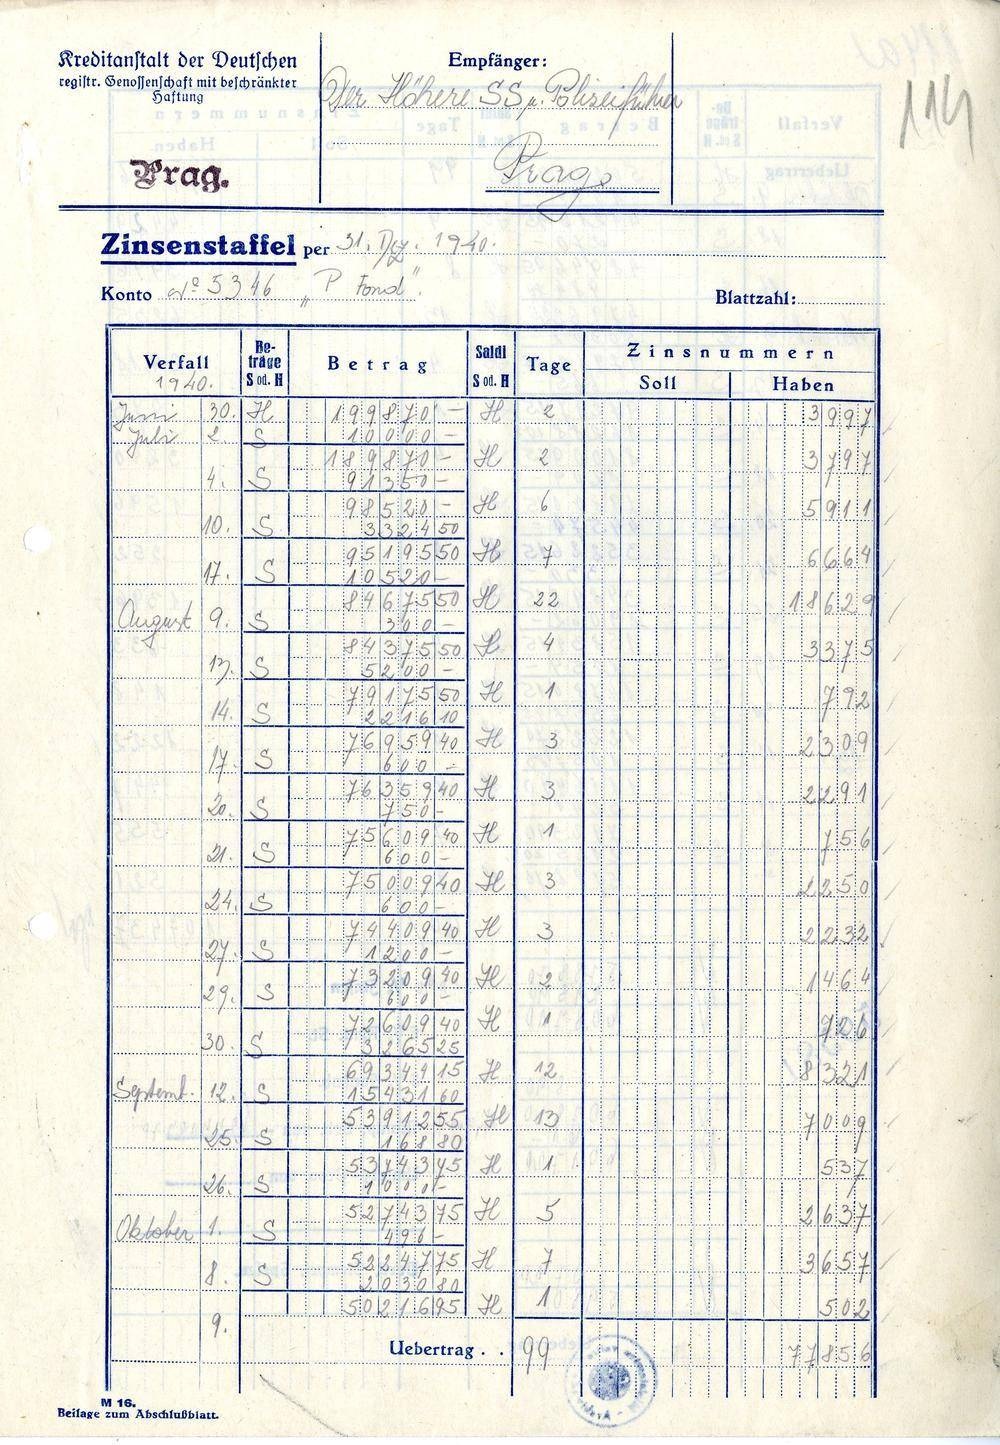 Kreditanstalt der Deutschen
registr. Genossenschaft mit beschränkter
Haftung
Prag.
Empfänger:
Der Höhere SS u. Polizeiführer
Prag.
114
Zinsenstaffel per 31. Dez. 1940.
Konto No 5346 "P Fond".
Blattzahl:
Verfall 1940. Beträge S od. H Betrag Saldi S od. H Tage Zinsnummern Soll Haben
Juni 30. H 199870 – H 2 3997
Juli 2. S 10000 –
189870 – H 2 3797
4. S 91350 –
98520 – H 6 5911
10. S 3324 50
95195 50 H 7 6664
17. S 10520 –
84675 50 H 22 18629
August 9. S 300 –
84375 50 H 4 3375
13. S 5200 –
79175 50 H 1 792
14. S 2216 10
76959 40 H 3 2309
17. S 600 –
76359 40 H 3 2291
20. S 750 –
75609 40 H 1 756
21. S 600 –
75009 40 H 3 2250
24. S 600 –
74409 40 H 3 2232
27. S 1200 –
73209 40 H 2 1464
29. S 600 –
72609 40 H 1 726
30. S 3265 25
69344 15 H 12 8321
Septemb. 12. S 15431 60
53912 55 H 13 7009
25. S 168 80
53743 75 H 1 537
26. S 1000 –
52743 75 H 5 2637
Oktober 1. S 496 –
52247 75 H 7 3657
8. S 2030 80
50216 95 H 1 502
9.
Uebertrag . . 99 77856
M 16.
Beilage zum Abschlußblatt.